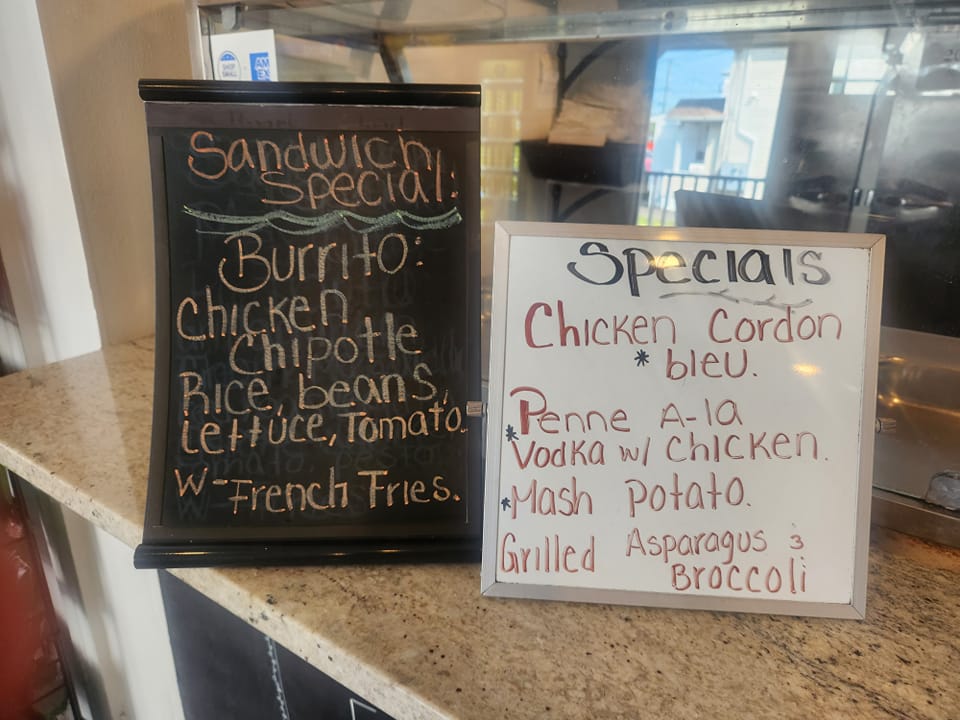 SHOP
SMALL
AM
EX
Sandwich
Special:
Burrito:
Chicken
Chipotle
Rice, beans,
Lettuce, Tomato.
W-French Fries.
Specials
Chicken Cordon
* bleu.
Penne A-la
* Vodka w/ Chicken.
* Mash Potato.
Grilled Asparagus &
Broccoli